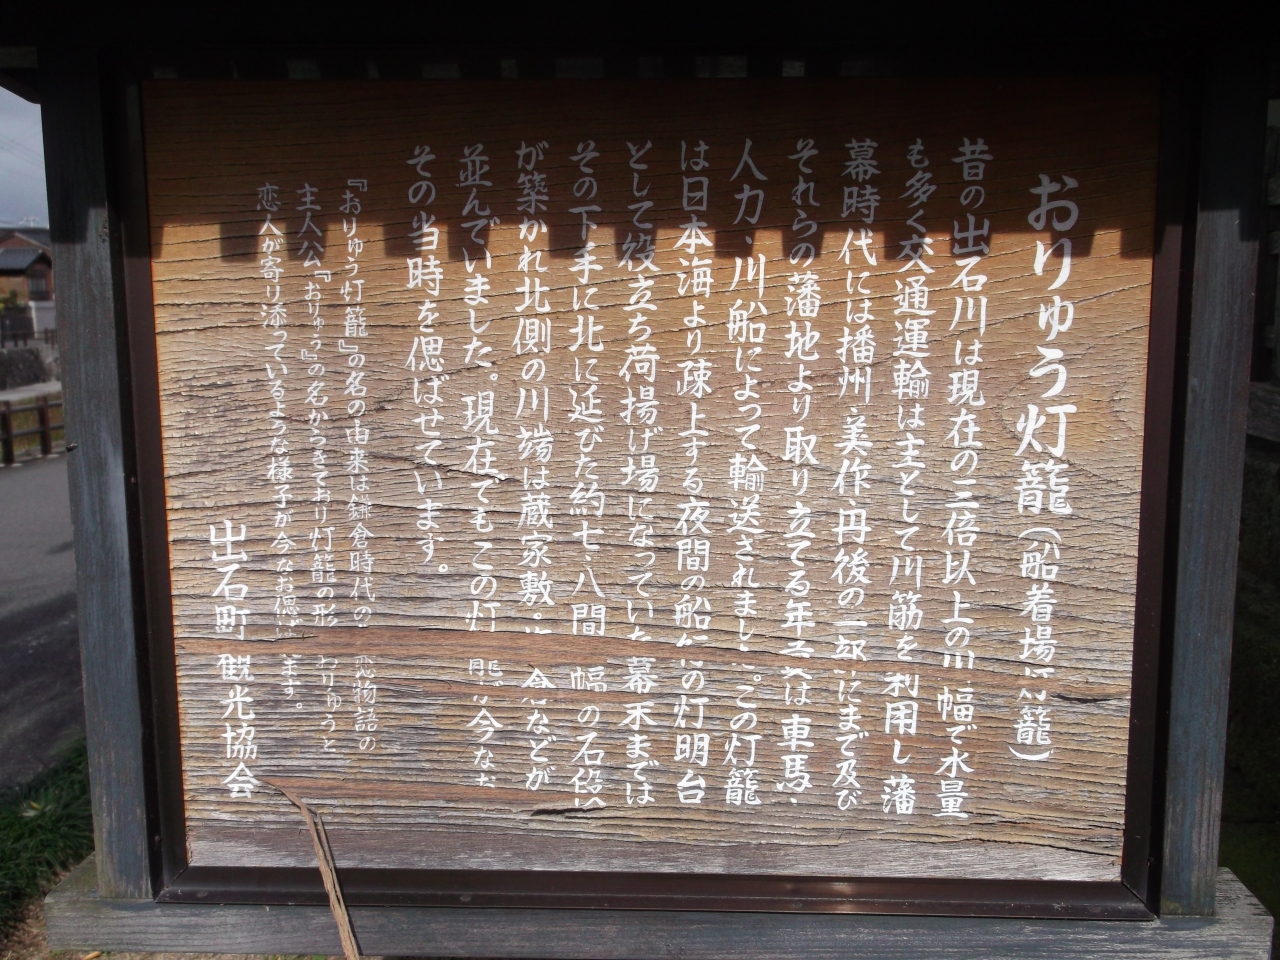 おりゅう灯籠(船着場灯籠)
昔の出石川は現在の二倍以上の川幅で水量
も多く交通運輸は主として川筋を利用し藩
幕時代には播州、美作、丹後の一部にまで及び
それらの藩地より取り立てる年貢は車馬、
人力、川船によって輸送されました。この灯籠
は日本海より疎上する夜間の船行の灯明台
として役立ち荷揚げ場になっていた幕末までは
その下手に北に延びた約七、八間 幅 の石段
が築かれ北側の川端は蔵家敷。 などが
並んでいました。現在でもこの灯籠が今なお
その当時を偲ばせています。
『おりゅう灯籠』の名の由来は鎌倉時代の 恋物語の
主人公『おりゅう』の名からきており灯籠の形 おりゅうと
恋人が寄り添っているような様子が今なお偲ばせます。
出石町観光協会